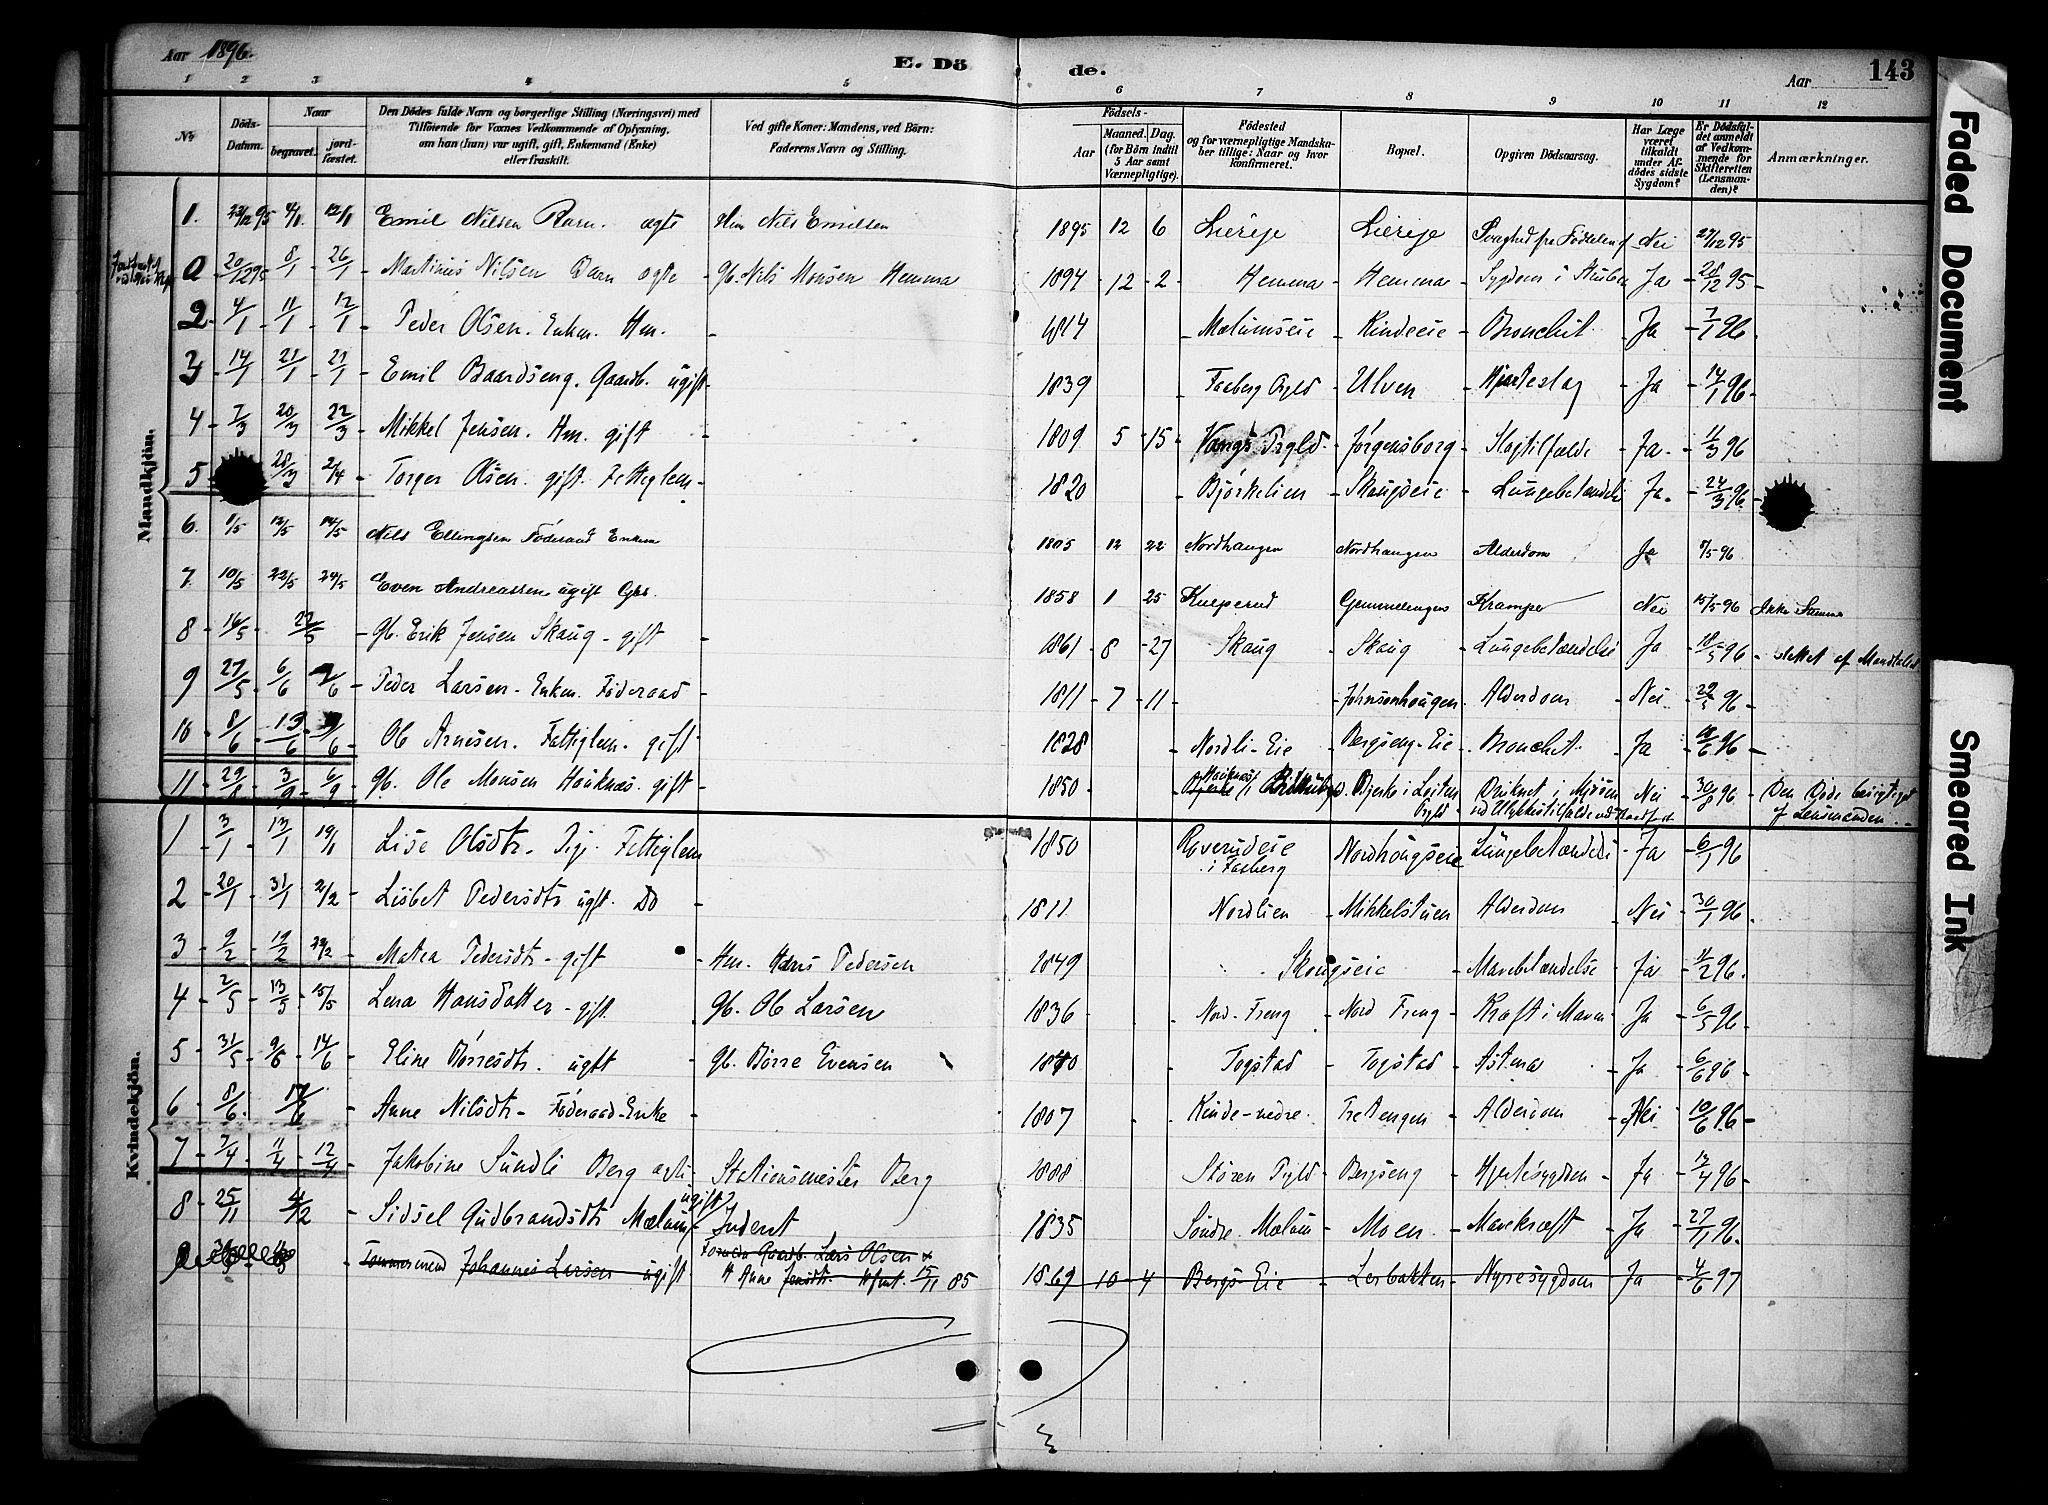 Aar 1896.
E. Döde.
Aar
143
1 2 3 4 5 6 7 8 9 10 11 12
No
Döds-Datum.
Naar
begravet.
jord-fæstet.
Den Dödes fulde Navn og borgerlige Stilling (Næringsvei) med
Tilföiende for Voxnes Vedkommende af Oplysning,
om han (hun) var ugift, gift, Enkemand (Enke)
eller fraskilt.
Ved gifte Koner: Mandens, ved Börn:
Faderens Navn og Stilling.
Födsels-
Aar
Maaned. Dag.
(for Börn indtil
5 Aar samt
Værnepligtige).
Födested
og for værnepligtige Mandska-
ber tillige: Naar og hvor
konfirmeret.
Bopæl.
Opgiven Dödsaarsag.
Har Læge
været
tilkaldt
under Af-
dödes sidste
Sygdom?
Er Dödsfal-
det anmeldt
af Vedkom-
mende for
Skifteretten
(Lensman-
den)?
Anmærkninger.
Mandkjön.
1. 23/12 95 4/1 12/1 Emil Nilsen Barn. ægte Hm Nils Emilsen 1895 12 6 Liereje Liereje Svaghed fra Födselen Nei 27/12 95
20/12 95 8/1 26/1 Martinus Nilsen Barn ægte Gb. Nils Monsen Hemma 1894 12 2 Hemma Hemma Sygdom i Ja 28/12 95
2 4/1 11/1 12/1 Peder Olsen. Enkm. Hm. 1814 Mælumseie Kindeeie Bronchit Ja 7/1 96
3 14/1 21/1 21/1 Emil Baardseng. Gaardb. ugift 1839 Faaberg Prgld Ulven Hjerteslag Ja 14/1 96
4 7/3 20/3 22/3 Mikkel Jensen. Hm. gift 1809 5 15 Vangs Prgld. Jörgensborg Slagtilfælde Ja 11/3 96
5 28/3 2/4 Torger Olsen. gift. Fattiglem 1820 Björkelien Skaugseie Lungebetændelse Ja. 24/3 96
6. 1/5 13/5 14/5 Nils Ellingsen Föderaad Enkem 1805 12 22 Nordhaugen Nordhaugen Alderdom Ja 7/5 96
7. 10/5 22/5 24/5 Even Andreassen ugift Gbs. 1858 1 25 Kulperud Gemmelengen Kramper Nei 15/5 96
8 16/5 22/5 Gb. Erik Jensen Skaug gift 1861 8 27 Skaug Skaug Lungebetændelse Ja 18/5 96 slettet af Mandtallet
9 27/5 6/6 Peder Larsen. Enkem. Föderaad 1811 7 11 Johnsenhougen Alderdom Nei 29/5 96
10 8/6 13/6 Ole Arnesen. Fattiglem. gift 1828 Nordli-Eie Bergseng-Eie Bronchit Ja 96
11 3/9 6/9 Gb. Ole Monsen Houknæs. gift 1850 Bjerke i Löiten Prgld Druknet i Mjösen ved Ulykkestilfælde Nei 30/8 96 Den Döde besigtiget
af Lensmanden.
Kvindekjön.
1 3/1 13/1 19/1 Lise Olsdtr. Pige. Fattiglem 1850 Roverudeie
i Faaberg Nordhougseie Lungebetændelse Ja 6/1 96
2 20/1 31/1 2/2 Lisbet Pedersdtr ugift. Do 1811 Nordlien Mikkelstuen Alderdom Nei 30/1 96
3 9/2 19/2 Matea Pedersdtr. gift Hm. Hans Pedersen 1849 Skougseie Mavebetændelse Ja 11/2 96
4 2/5 13/5 15/5 Lena Hansdatter gift. Gb. Ole Larsen 1836 Nord-Freng Nord Freng Kræft i Maven Ja 6/5 96
5 31/5 9/6 14/6 Eline Börresdtr. ugift Gb. Börre Evensen Togstad Togstad Astma Ja 6/6 96
6 8/6 Anne Nilsdtr. Föderaad-Enke 1807 Kinde-nedre Tretengen Alderdom Nei 10/6 96
7 7/4 11/4 12/4 Jakobine Sundli Berg ægte Stationsmester Berg 1888 Stören Prgld Bergseng Hjertesygdom Ja 13/4 96
8 25/11 4/12 Sidsel Gudbrandsdtr Mælum ugift? Inderst 1835 Söndre Mælum Moen Mavekræft Ja 27/11 96
Tømmermand Johannes Larsen ugift Gaardb. Lars Olsen
& Anne Jensdtr. 15/11 85 1869 10 4 Bergs Eie Lerbakken Nyresygdom Ja 4/6 97
Faded Document
Smeared Ink